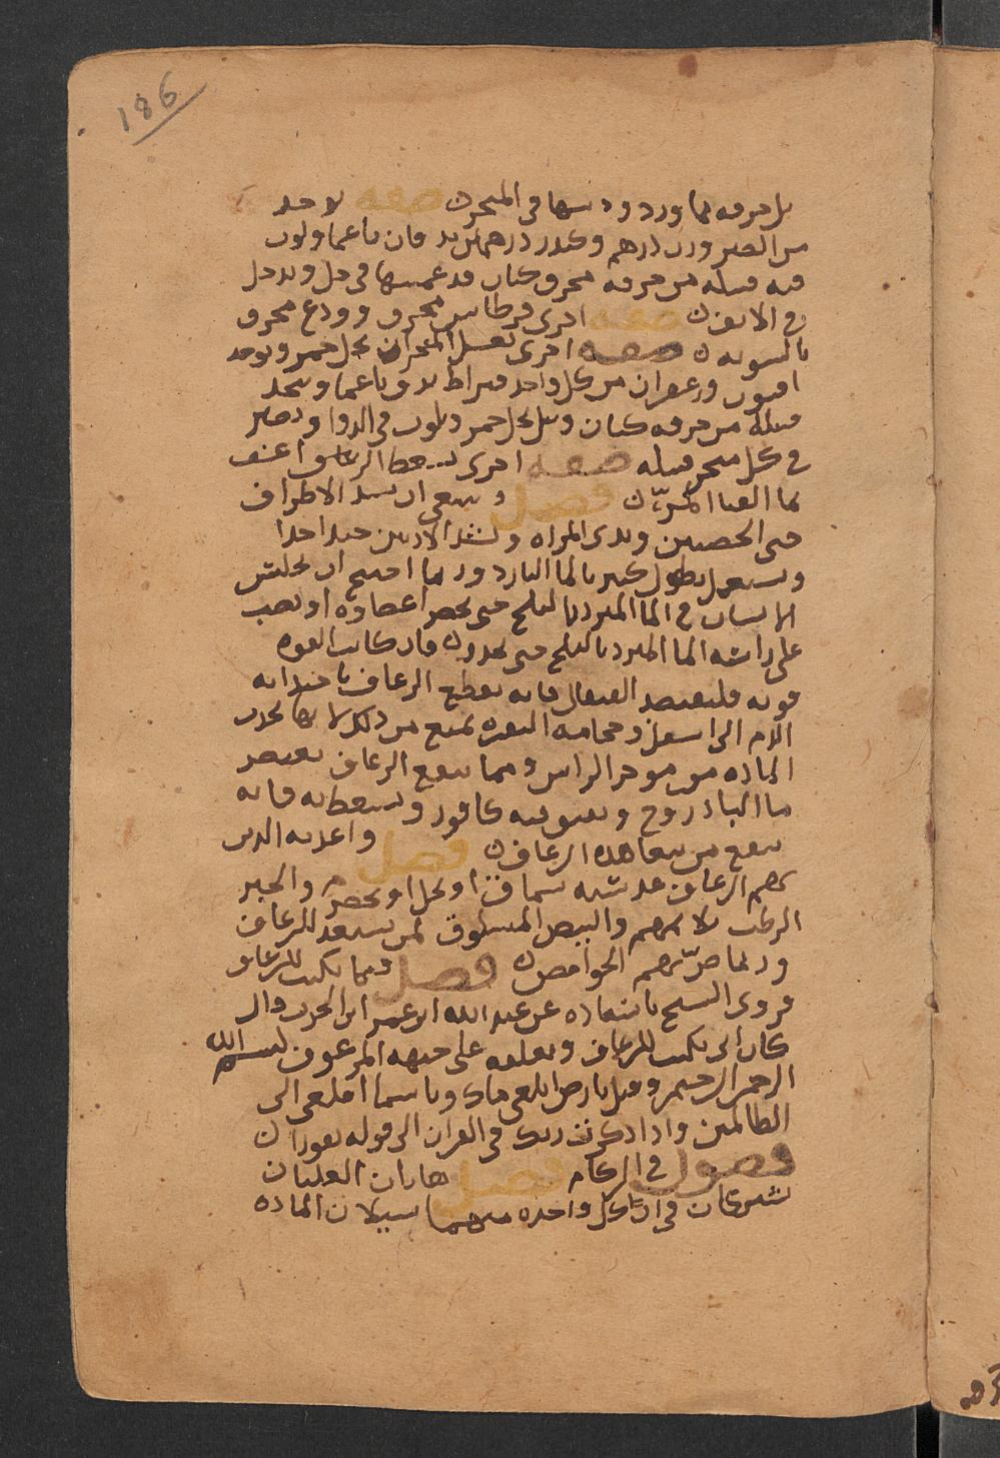 186
بل خرقه بماورد ودسها في المنخرين صفه لاخر
من الصبر وزن درهم وكندر درهمين يدقان ناعما ويلوث
فيه فتيله من خرقه محرق كتان قد غمستها في خل ويدخل
في الانف صفه اخرى قرطاس محرق وودع محرق
بالسويه صفه اخرى يغسل المنخران بخل خمر ويوخد
افيون وزعفران من كل واحد قيراط يدق ناعما ويتخد
فتيله من خرقه كتان وتبل بخل خمر ويلوث في الدوا ويصير
في كل منخر فتيله صفه اخرى يسعط الراعف
بما القثا المر فصل وينبغي ان يشد الاطراف
حتى الخصيين وثدي المراه وتشد الاذنين جيدا جدا
ويستعمل نطول كثير بالما البارد وربما احتيج ان يجلس
الانسان في الما المبرد بالثلج حتى يخضر اعضاوه او يصب
على راسه الما المبرد بالثلج حتى يخدر فان كانت القوه
قويه فليفصد القيفال فانه يقطع الرعاف باجتدابه
الدم الى اسفل وحجامه النقره تمنع من ذلك لانها تجدب
الماده من موخر الراس ومما ينفع الرعاف يعتصر
ما البادروج ويفتق فيه كافور ويسعط به فانه
ينفع من هذا الرعاف فصل واغديه الدين
بهم الرعاف عدسيه بسماق او بخل او بحصرم والجبن
الرطب بلا والبيض المسلوق لمن يستعد للرعاف
وربما ضرتهم الحوامض فصل فيما يكتب للرعاف
فروى الشيخ باسناده عن عبد الله ابن عمر ابن قال
كان ابي يكتب للرعاف ويعلقه على جبهه المرعوف بسم الله
الرحمن الرحيم وقيل يا رض ابلعي ماك ويا سما اقلعي الى
الظالمين وادا دكرت ربك في القران الى قوله نفورا
فصول في الزكام فصل هاتان العلتان
تشتركان في ان كل واحده منهما سيلان الماده